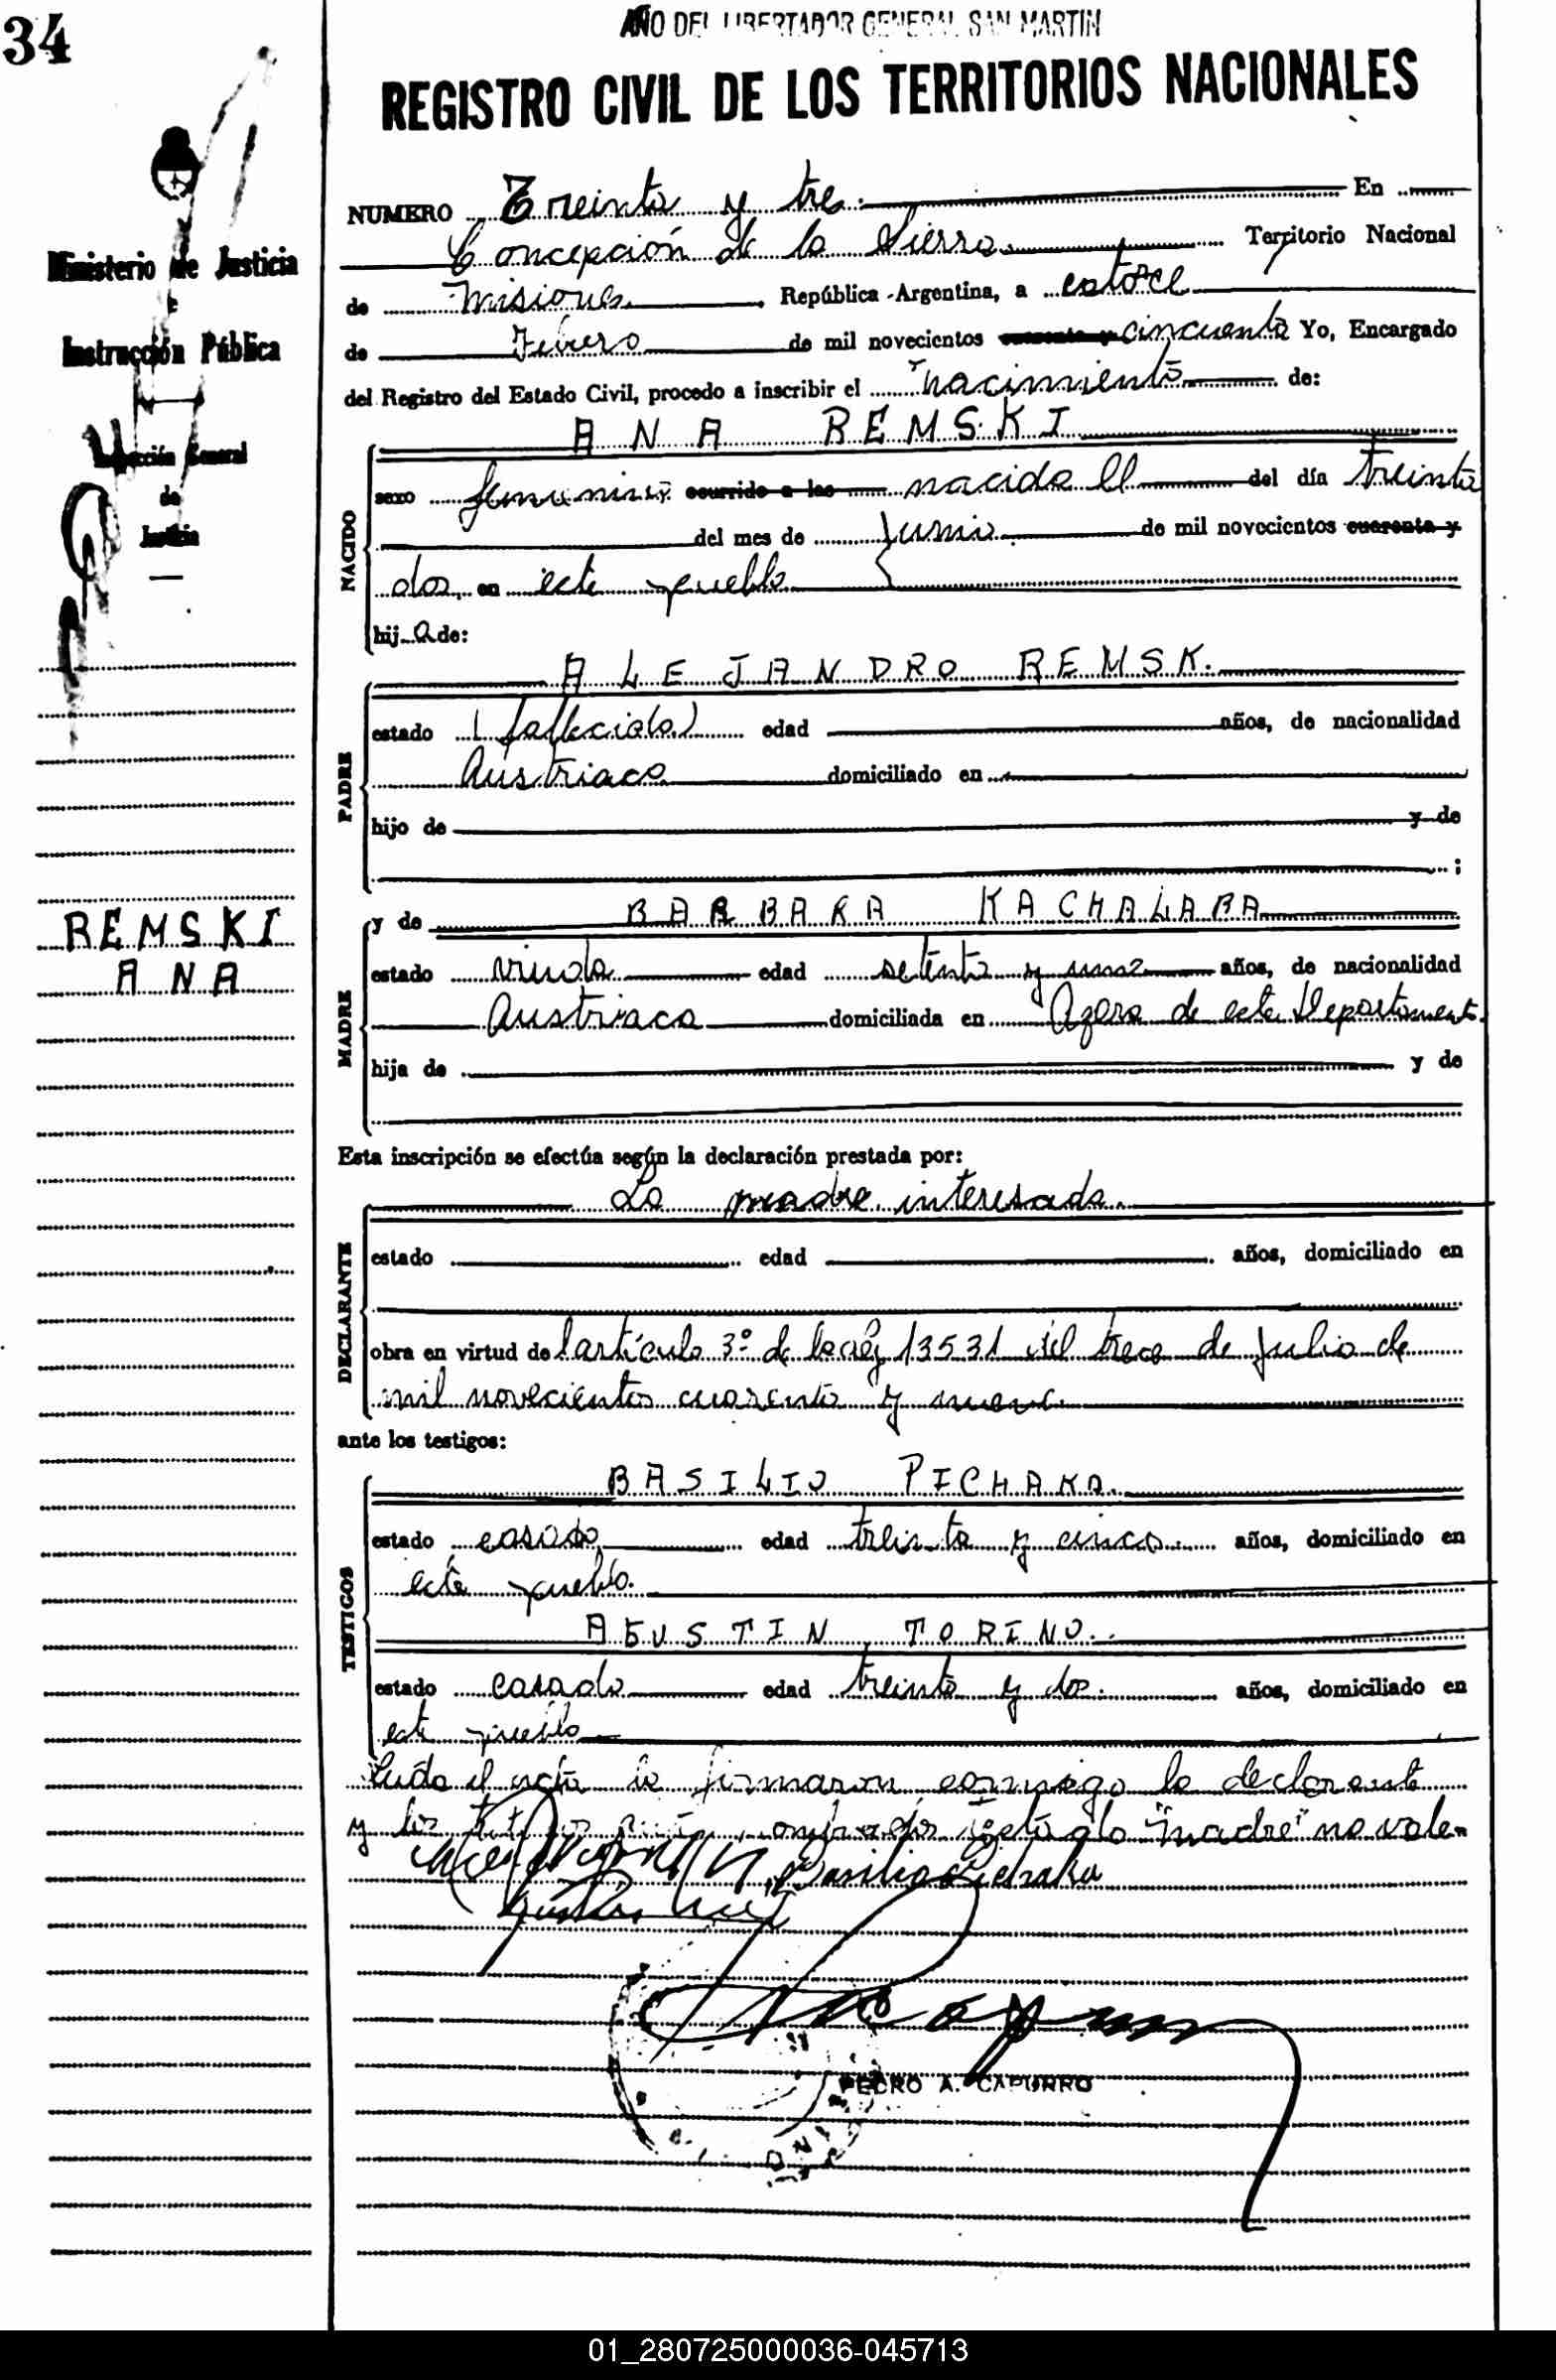 34
AÑO DEL LIBERTADOR GENERAL SAN MARTIN
REGISTRO CIVIL DE LOS TERRITORIOS NACIONALES
Ministerio de Justicia
e
Instrucción Pública
Inspección General
de
Justicia
REMSKI
ANA
NUMERO Treinta y tres En
Concepción de la Sierra Territorio Nacional
de Misiones República Argentina, a catorce
de Febrero de mil novecientos cuarenta y cincuenta Yo, Encargado
del Registro del Estado Civil, procedo a inscribir el nacimiento de:
NACIDO
ANA REMSKI
sexo femenino ocurrido a las nacida el del día treinta
del mes de Junio de mil novecientos cuarenta y
dos, en este pueblo
hij a de:
PADRE
ALEJANDRO REMSK.
estado (fallecido) edad años, de nacionalidad
Austriaco domiciliado en
hijo de y de
;
MADRE
y de BARBARA KACHALABA
estado viuda edad setenta y una años, de nacionalidad
Austriaca domiciliada en Azara de este Departamento.
hija de y de
Esta inscripción se efectúa según la declaración prestada por:
DECLARANTE
La madre interesada.
estado edad años, domiciliado en
obra en virtud del artículo 3º de la ley 13531 del trece de Julio de
mil novecientos cuarenta y nueve
ante los testigos:
TESTIGOS
BASILIO PICHAKA.
estado casado edad treinta y cinco años, domiciliado en
este pueblo.
AGUSTIN TORINO.
estado casado edad treinta y dos. años, domiciliado en
este pueblo
Leída el acta la firmaron conmigo la declarante
y los testado "madre" no vale.
Basilio Pichaka
PEDRO A. CAPURRO
01_280725000036-045713